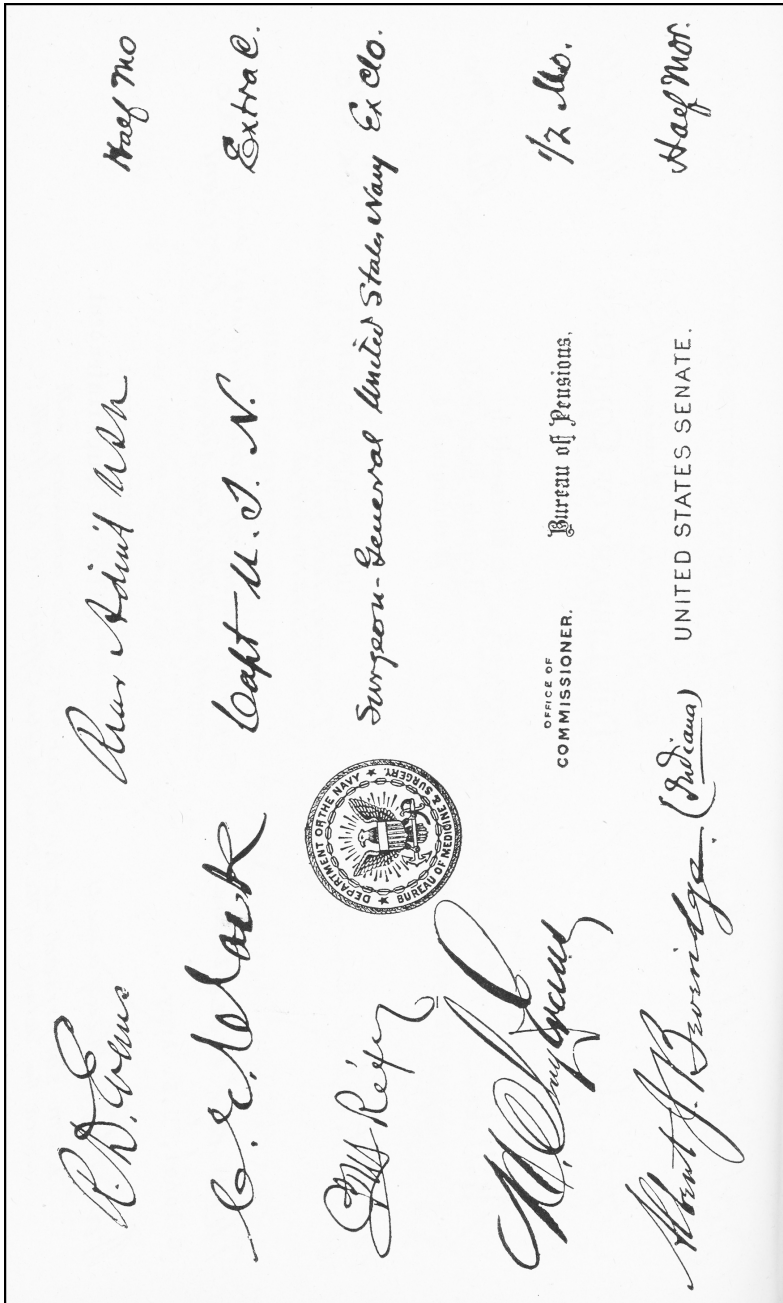 R. D. Evans Rear Adm'l USN Half Mo
C. E. Clark Capt U. S. N. Extra C.
DEPARTMENT OF THE NAVY ★ BUREAU OF MEDICINE & SURGERY. ★
P M Rixey Surgeon-General United States Navy Ex Clo.
H. Clay Evans OFFICE OF COMMISSIONER. Bureau of Pensions, 1/2 Mo.
Albert J. Beveridge. (Indiana) UNITED STATES SENATE. Half Mor.